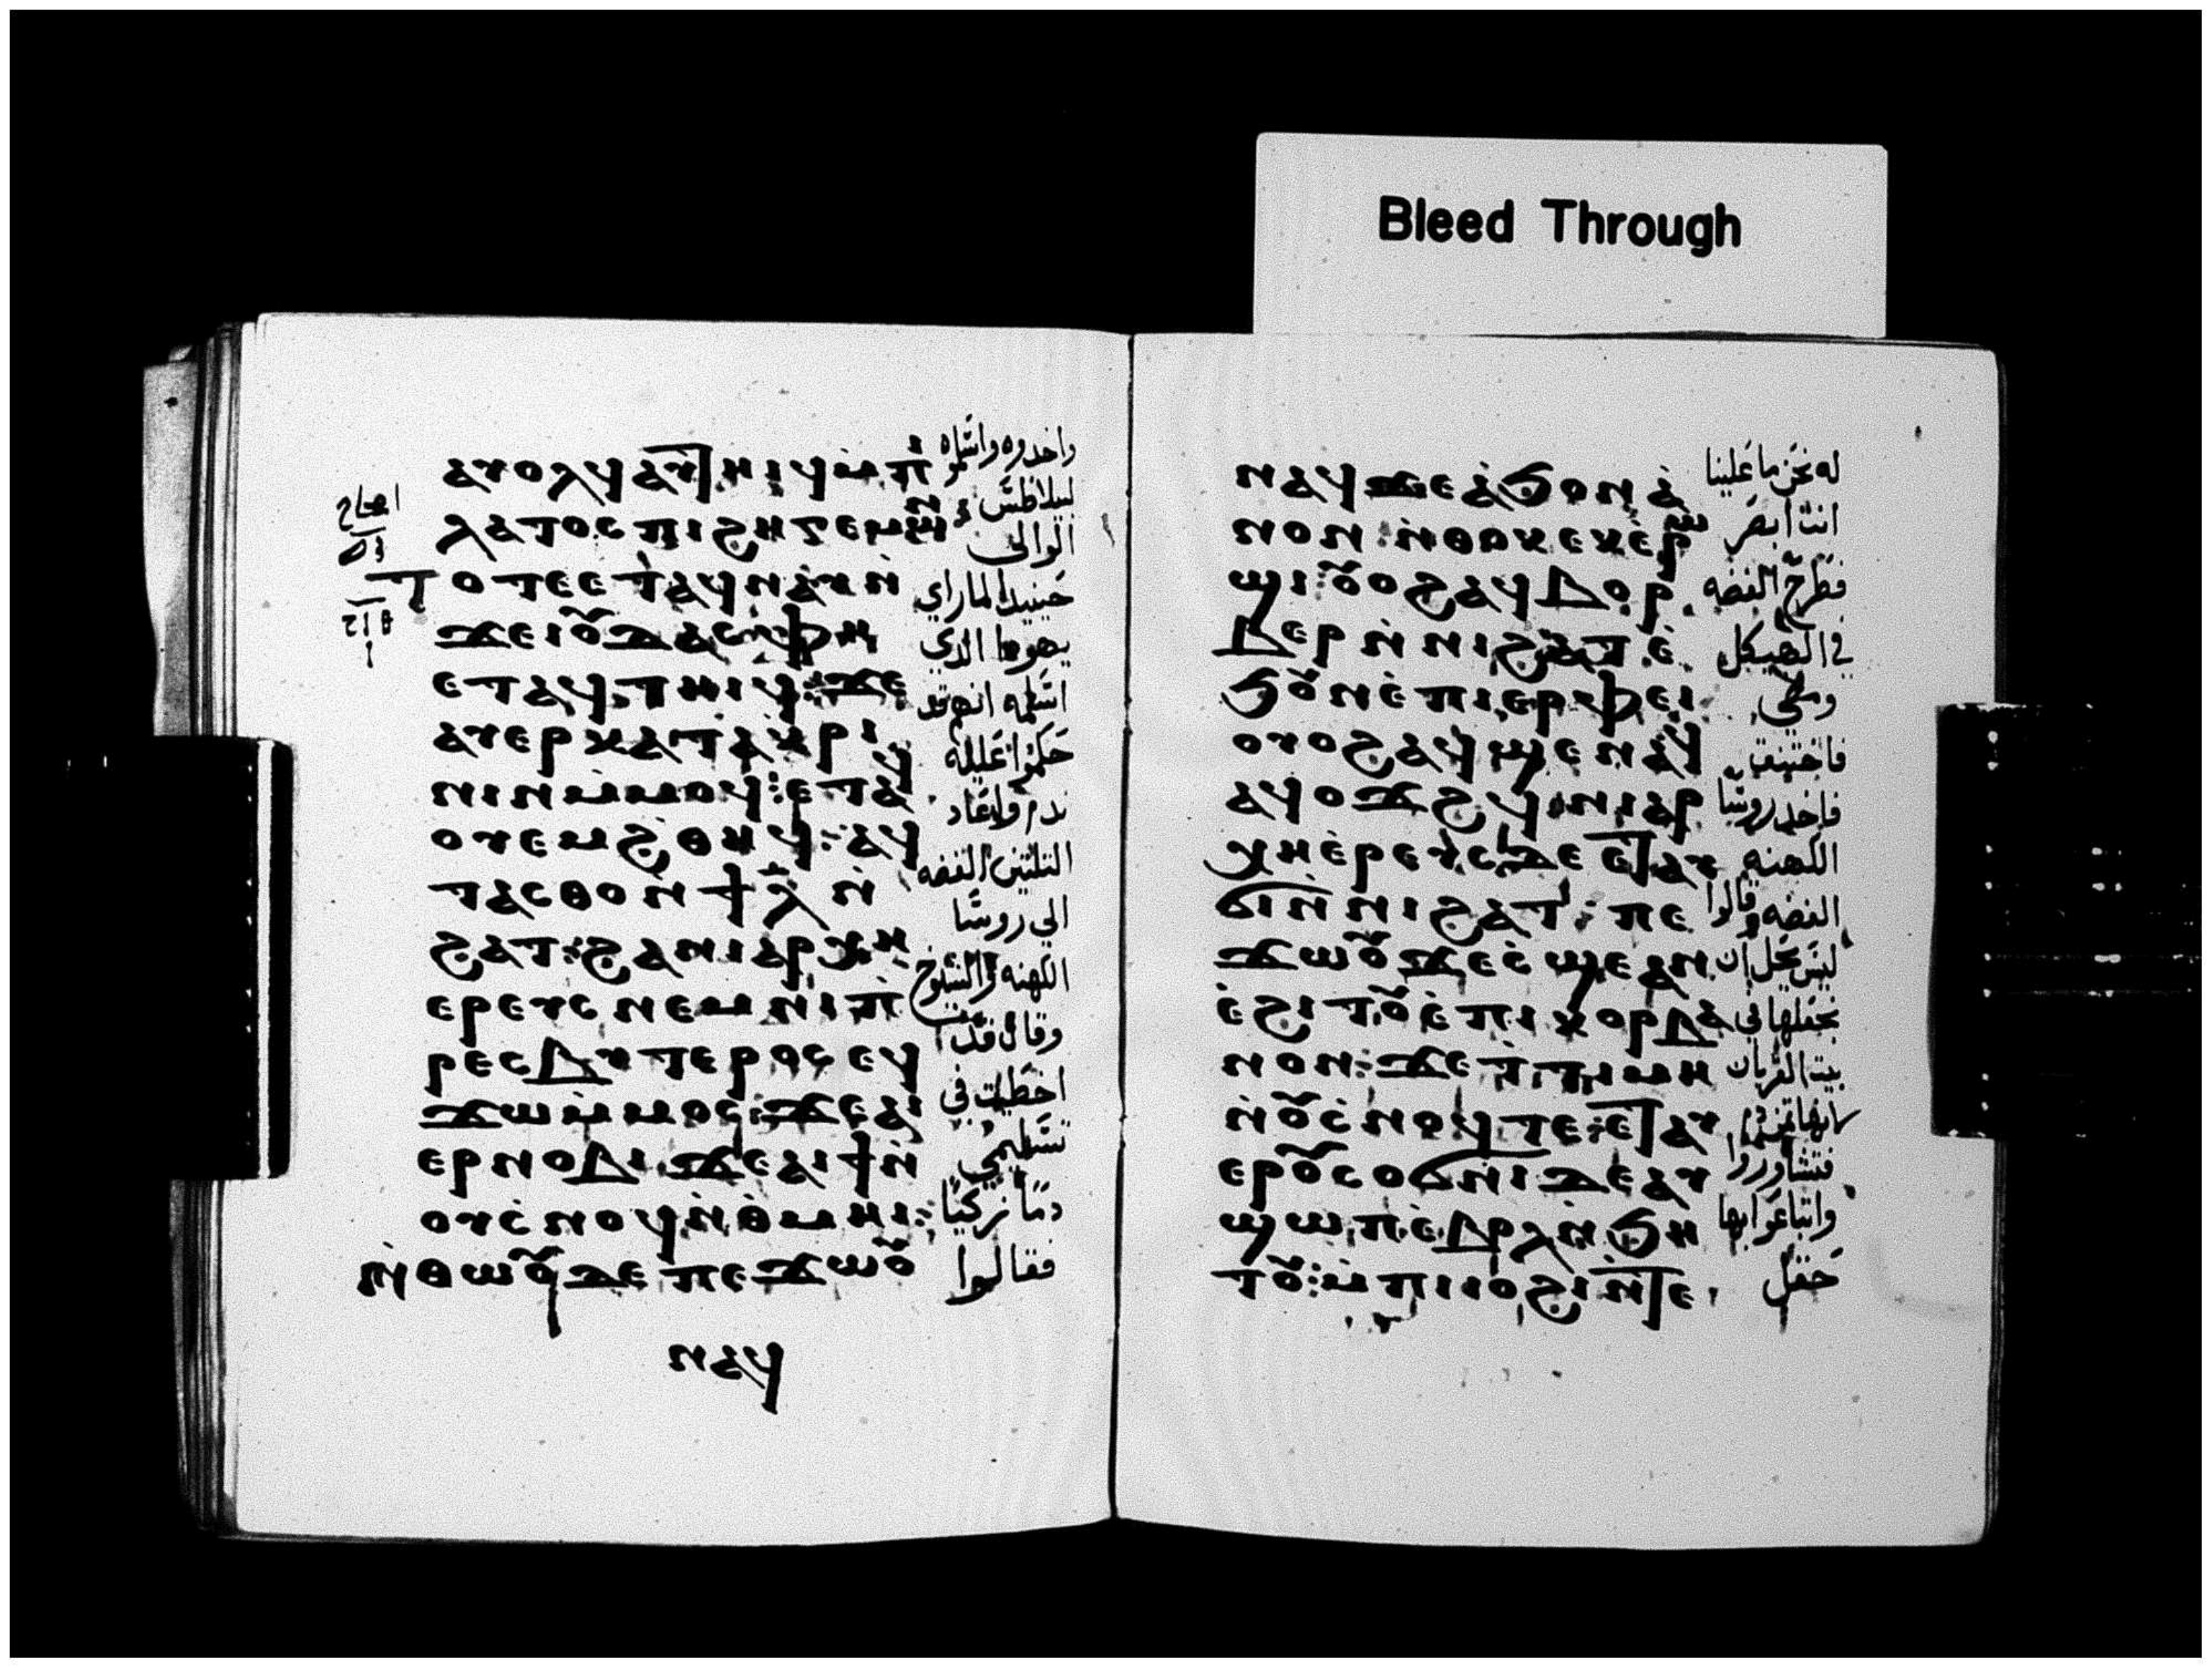 ⲁⲩⲟⲗϥ ⲁⲩⲧⲏⲓϥ ⲙ̀ⲡⲓ واخدوه واسلموه
ⲗⲁⲧⲟⲥ ⲡⲓϩⲏⲅⲉⲙⲱⲛ: لبيلاطس الوالى
ⲧⲟⲧⲉ ⲉⲧⲁϥⲛⲁⲩ ⲛ̀ حينيد لما راي
ϫⲉ ⲓⲟⲩⲇⲁⲥ ⲫⲏ يهودا الدي
ⲉⲧⲁϥⲧⲏⲓϥ: ϫⲉ اسلمه انهم قد
ⲁⲩⲉⲣⲕⲁⲧⲁⲕⲣⲓ حكموا عليه
ⲛⲓⲛ ⲙ̀ⲙⲟϥ: ⲉⲧⲁϥ ندم واعاد
ⲟⲩⲉⲙϩⲑⲏϥ: ⲁϥ التلتين الفضه
ⲧⲁⲥⲑⲟ ⲛ̀ϯⲗ̅ ⲛ̀ الي روسا
ϩⲁⲧ: ϩⲁ ⲛⲓⲁⲣⲭⲏ الكهنه والشيوخ
ⲉⲣⲉⲩⲥ ⲛⲉⲙ ⲛⲓⲡ̀ وقال قد
ⲣⲉⲥⲃⲩⲧⲉⲣⲟⲥ ⲉϥ اخطيت في
ϫⲱ ⲙ̀ⲙⲟⲥ: ϫⲉ ⲁⲓ تسليمي
ⲉⲣⲛⲟⲃⲓ ϫⲉ ⲁⲓϯ ⲛ̀
ⲟⲩⲥ̀ⲛⲟϥ ⲛ̀ⲑ̀ⲙⲏⲓ: دما زكيا
ⲛ̀ⲑⲱⲟⲩ ⲇⲉ ⲡⲉϫⲱⲟⲩ فقالوا
ⲛⲁϥ
Bleed Through
ⲛⲁϥ ϫⲉ ⲁ̀ϭⲟⲛ ⲁ̀ له نحن ما علينا
ⲛⲟⲛ ⲛ̀ⲑⲟⲕ ⲉⲕⲉ̀ⲣ انت ابصر
ϣⲓ: ⲟⲩⲟϩ ⲁϥⲃⲟⲣ فطرح الفضه
ⲃⲉⲣ ⲛ̀ⲛⲓϩⲁⲧ ⲉ̀ في الهيكل
ϧⲟⲩⲛ ⲉ̀ⲡⲓⲉⲣⲫⲉⲓ ومضي
ⲟⲩⲟϩ ⲁϥϣⲉⲛⲁϥ فاختنق
ⲁϥⲟϫϩϥ: ⲛⲓⲁⲣ فاخد روسا
ⲭⲏⲉ̀ⲣⲉⲩⲥ ⲇⲉ ⲉⲧⲁⲩ الكهنه
ϭⲓ ⲛ̀ⲛⲓϩⲁⲧ: ⲡⲉ الفضه وقالوا
ϫⲱⲟⲩ ϫⲉ ⲥ̀ϣⲉ ⲁⲛ ليس يحل ان
ⲉ̀ϩⲓⲧⲟⲩ ⲉ̀ⲡⲓⲕⲟⲣⲃⲁ نجعلها في
ⲛⲟⲛ: ϫⲉ ⲧ̀ⲧⲓⲙⲏ بيت القربان
ⲛ̀ⲟⲩⲥ̀ⲛⲟϥ ⲧⲉ: ⲉⲧⲁⲩ لانها تمن دم
ⲉⲣⲟⲩⲥⲟϭⲛⲓ ⲇⲉ ⲁⲩ فتشاوروا
ϣⲱⲡ ⲉ̀ⲃⲟⲗ ⲛ̀ϧⲏ وابتاعوا بها
ⲧⲟⲩ: ⲙ̀ⲡⲓⲓⲟϩⲓ ⲛ̀ⲧⲉ حقل